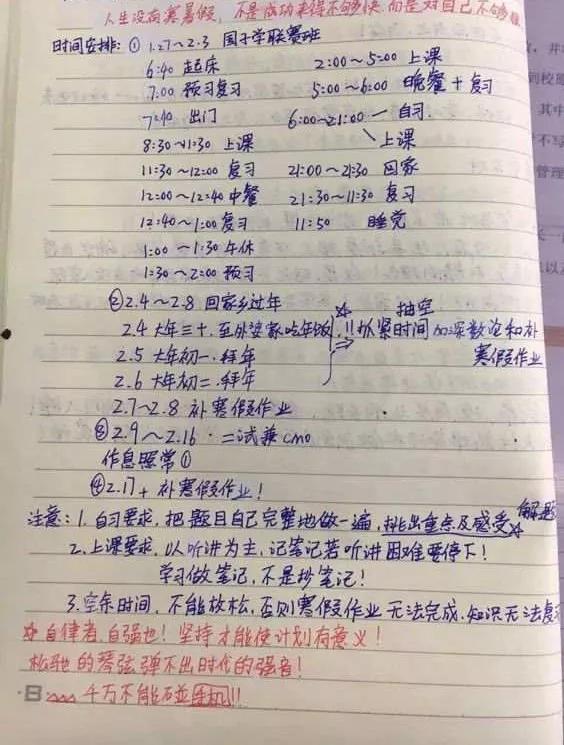 人生没有寒暑假，不是成功来得不够快，而是对自己不够狠
时间安排：① 1.27～2.3 国子学联赛班
6:40 起床 2:00～5:00 上课
7:00 预习复习 5:00～6:00 晚餐＋复习
7:40 出门 6:00~21:00 — 自习.
8:30~11:30 上课 上课
11:30～12:00 复习 21:00～21:30 回家
12:00～12:40 中餐 21:30～11:30 复习
12:40～1:00 复习 11:50 睡觉
1:00～1:30 午休
1:30～2:00 预习
②2.4～2.8 回家乡过年 抽空
2.4 大年三十.至外婆家吃年饭 !!抓紧时间加深数论和补
2.5 大年初一.拜年 寒假作业
2.6 大年初二.拜年
2.7～2.8 补寒假作业
③2.9～2.16 · 二试兼cmo
作息照常①
④2.17+ 补寒假作业！
注意：1.自习要求，把题目自己完整地做一遍，挑出重点及感受 解题
2.上课要求，以听讲为主，记笔记若听讲困难要停下！
学习做笔记，不是抄笔记！
3.空余时间，不能放松，否则寒假作业无法完成.知识无法复
☆自律者，自强也！坚持才能使计划有意义！
松弛的琴弦弹不出时代的强音！
千万不能碰手机!!